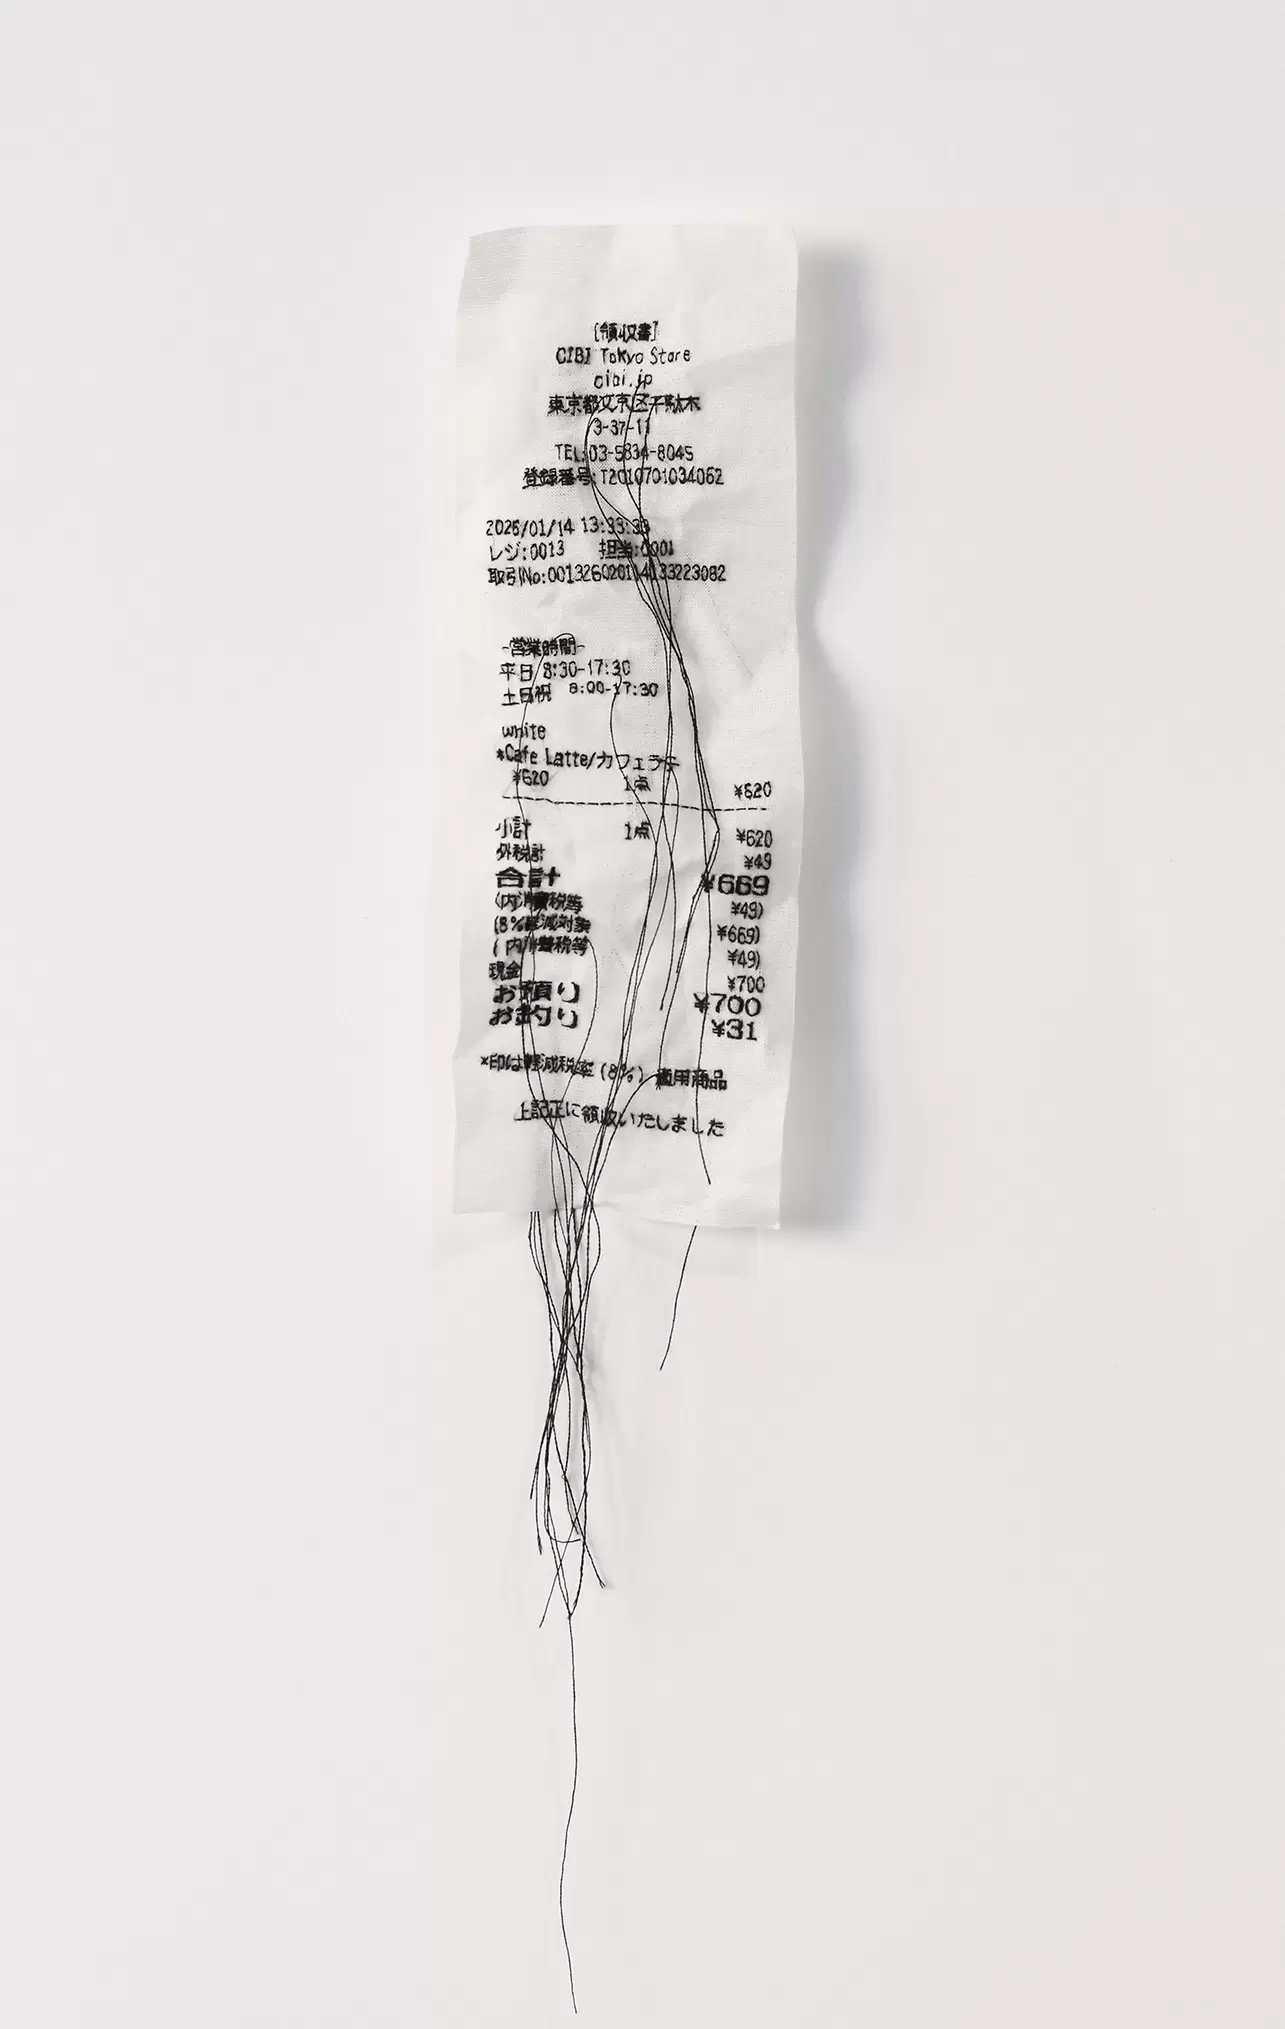 [領収書]
CIBI Tokyo Store
cibi.jp
東京都文京区千駄木
3-37-11
TEL:03-5834-8045
登録番号:T2010701034062
2026/01/14 13:33:33
レジ:0013 担当:0001
取引No:
-営業時間-
平日 8:30-17:30
土日祝 8:00-17:30
white
*Cafe Latte/カフェラテ
¥620 1点 ¥620
小計 1点 ¥620
外税計 ¥49
合計 ¥669
(内消費税等 ¥49)
(8%軽減対象 ¥669)
(内消費税等 ¥49)
現金 ¥700
お預り ¥700
お釣り ¥31
*印は軽減税率(8%)適用商品
上記正に領収いたしました